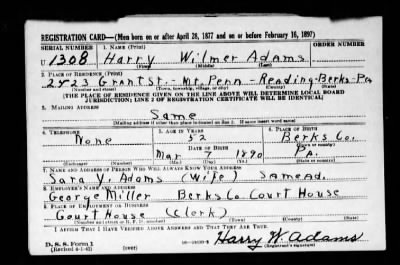 REGISTRATION CARD—(Men born on or after April 28, 1877 and on or before February 16, 1897)
SERIAL NUMBER 1. NAME (Print) ORDER NUMBER
U 1308 Harry Wilmer Adams
(First) (Middle) (Last)
2. PLACE OF RESIDENCE (Print)
2423 Grant St.- Mt. Penn - Reading - Berks - Pa
(Number and street) (Town, township, village, or city) (County) (State)
[THE PLACE OF RESIDENCE GIVEN ON THE LINE ABOVE WILL DETERMINE LOCAL BOARD
JURISDICTION; LINE 2 OF REGISTRATION CERTIFICATE WILL BE IDENTICAL]
3. MAILING ADDRESS
Same
[Mailing address if other than place indicated on line 2. If same insert word same]
4. TELEPHONE 5. AGE IN YEARS 6. PLACE OF BIRTH
None 52 Berks Co.
DATE OF BIRTH (Town or county)
Mar 7 1890 Pa.
(Exchange) (Number) (Mo.) (Day) (Yr.) (State or country)
7. NAME AND ADDRESS OF PERSON WHO WILL ALWAYS KNOW YOUR ADDRESS
Sara V. Adams (Wife) Same ad.
8. EMPLOYER'S NAME AND ADDRESS
George Miller Berks Co Court House
9. PLACE OF EMPLOYMENT OR BUSINESS
Court House (Clerk)
(Number and street or R. F. D. number) (Town) (County) (State)
I AFFIRM THAT I HAVE VERIFIED ABOVE ANSWERS AND THAT THEY ARE TRUE.
D. S. S. Form 1
(Revised 4-1-42) (over)
Harry W. Adams
(Registrant's signature)